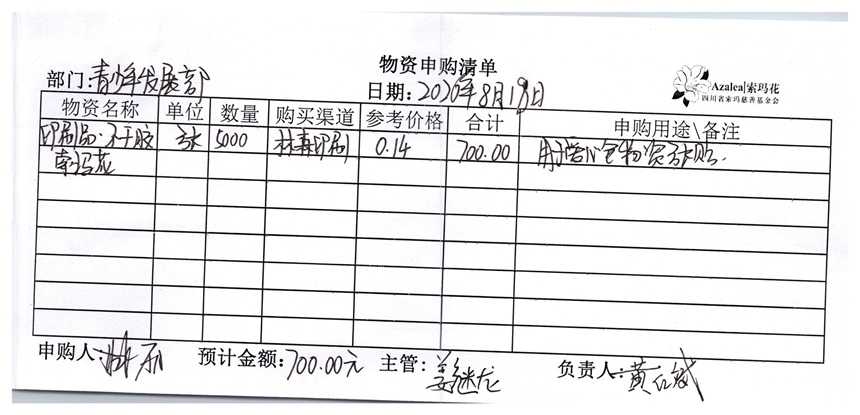 物资申购清单
部门:青少年发展部
日期:2020年8月19日
Azalea|索玛花
四川省索玛慈善基金会
物资名称 单位 数量 购买渠道 参考价格 合计 申购用途\备注
印刷品·不干胶 张 5000 林森印刷 0.14 700.00 用于爱心包物资张贴.
索玛花
申购人: 预计金额:700.00元 主管:姜继龙 负责人:黄红斌